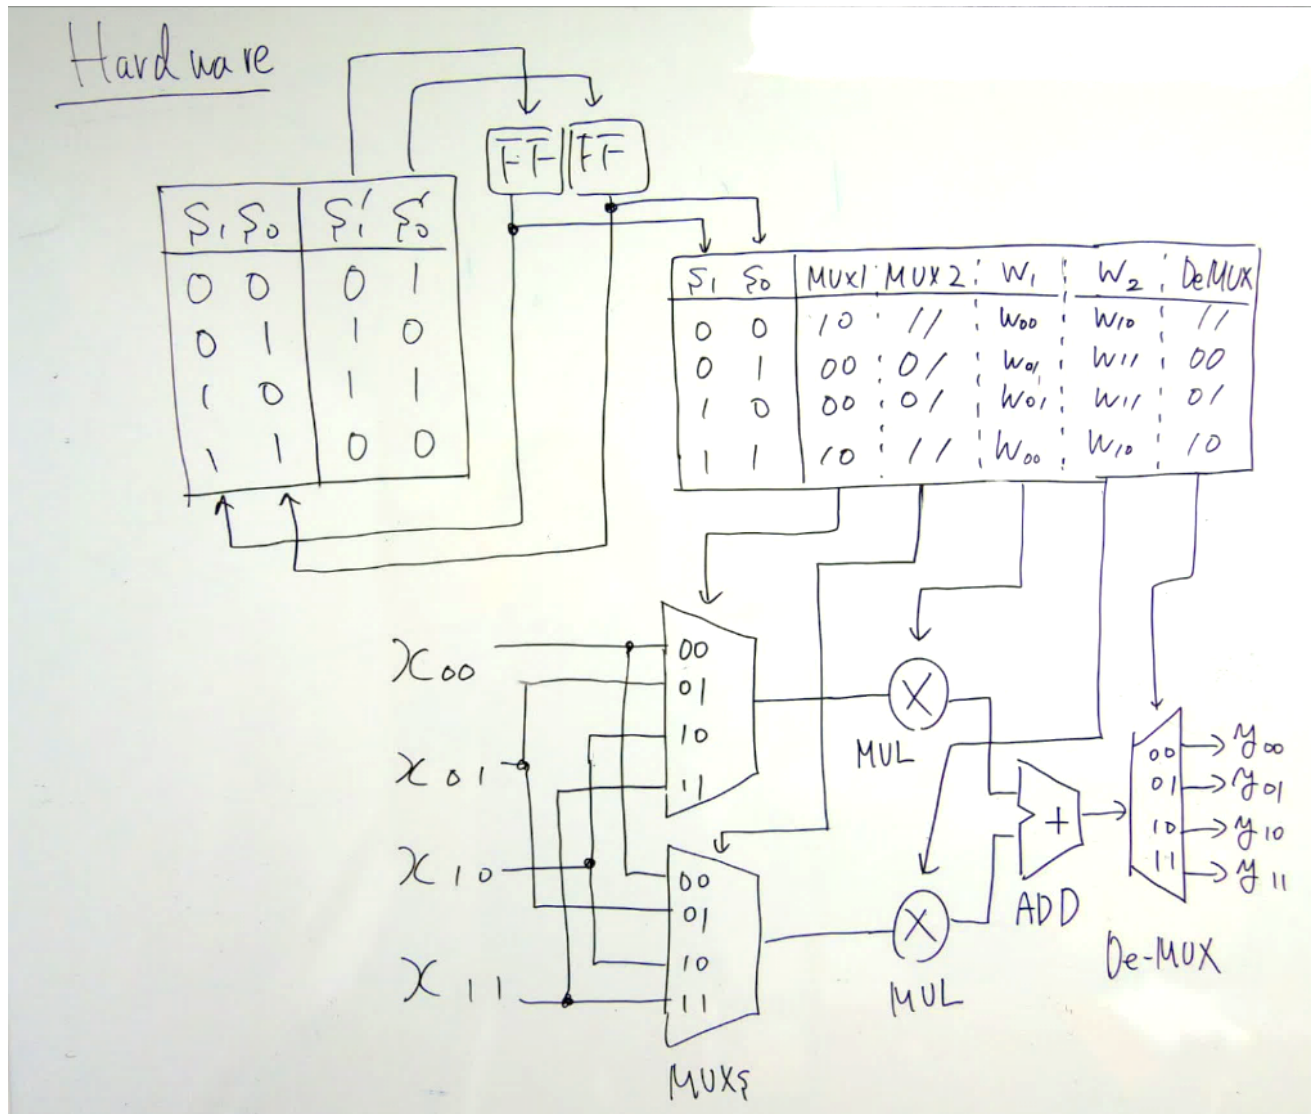 Hardware
FF FF
S₁ S₀ S₁' S₀'
0 0 0 1
0 1 1 0
1 0 1 1
1 1 0 0
S₁ S₀ MUX1 MUX2 W₁ W₂ DeMUX
0 0 10 11 W₀₀ W₁₀ 11
0 1 00 01 W₀₁ W₁₁ 00
1 0 00 01 W₀₁ W₁₁ 01
1 1 10 11 W₀₀ W₁₀ 10
x₀₀
x₀₁
x₁₀
x₁₁
00
01
10
11
00
01
10
11
MUXs
X
MUL
X
MUL
+
ADD
00
01
10
11
De-MUX
y₀₀
y₀₁
y₁₀
y₁₁